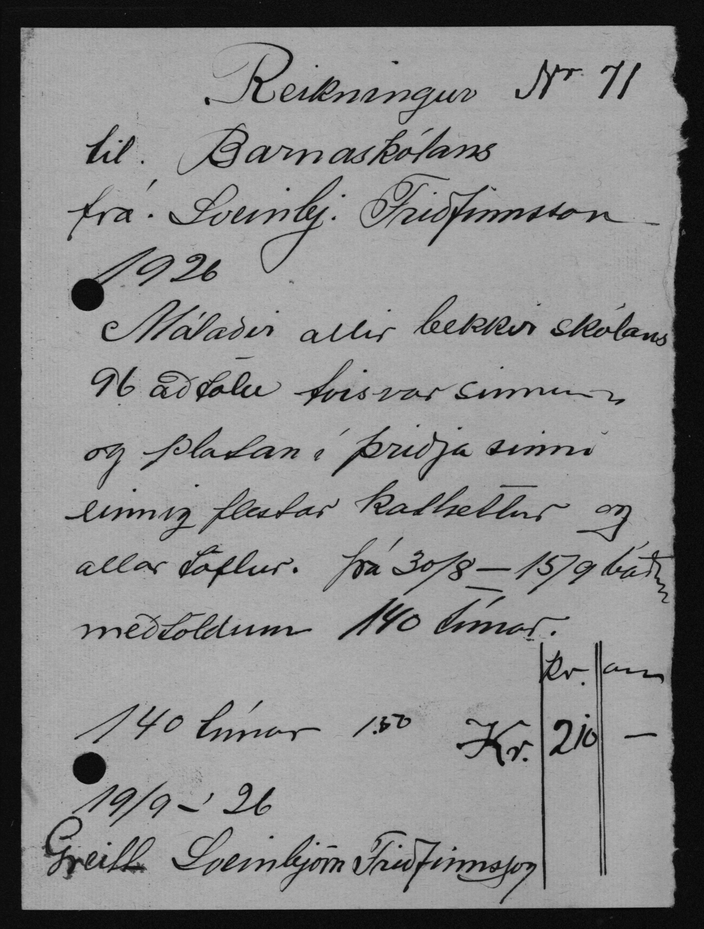 Reikningur Nr 71
til. Barnaskólans
frá. Sveinbj. Friðfinnsson
1926
Málaðir allir bekkir skólans
96 að tölu tvisvar sinnum
og platan í þriðja sinni
einnig flestar kathettur og
allar töflur. frá 30/8 — 15/9 báðum
meðtöldum 140 tímar.
kr. aur
140 tímar 1.50 Kr. 210 —
19/9 – '26
Greitt Sveinbjörn Friðfinnsson